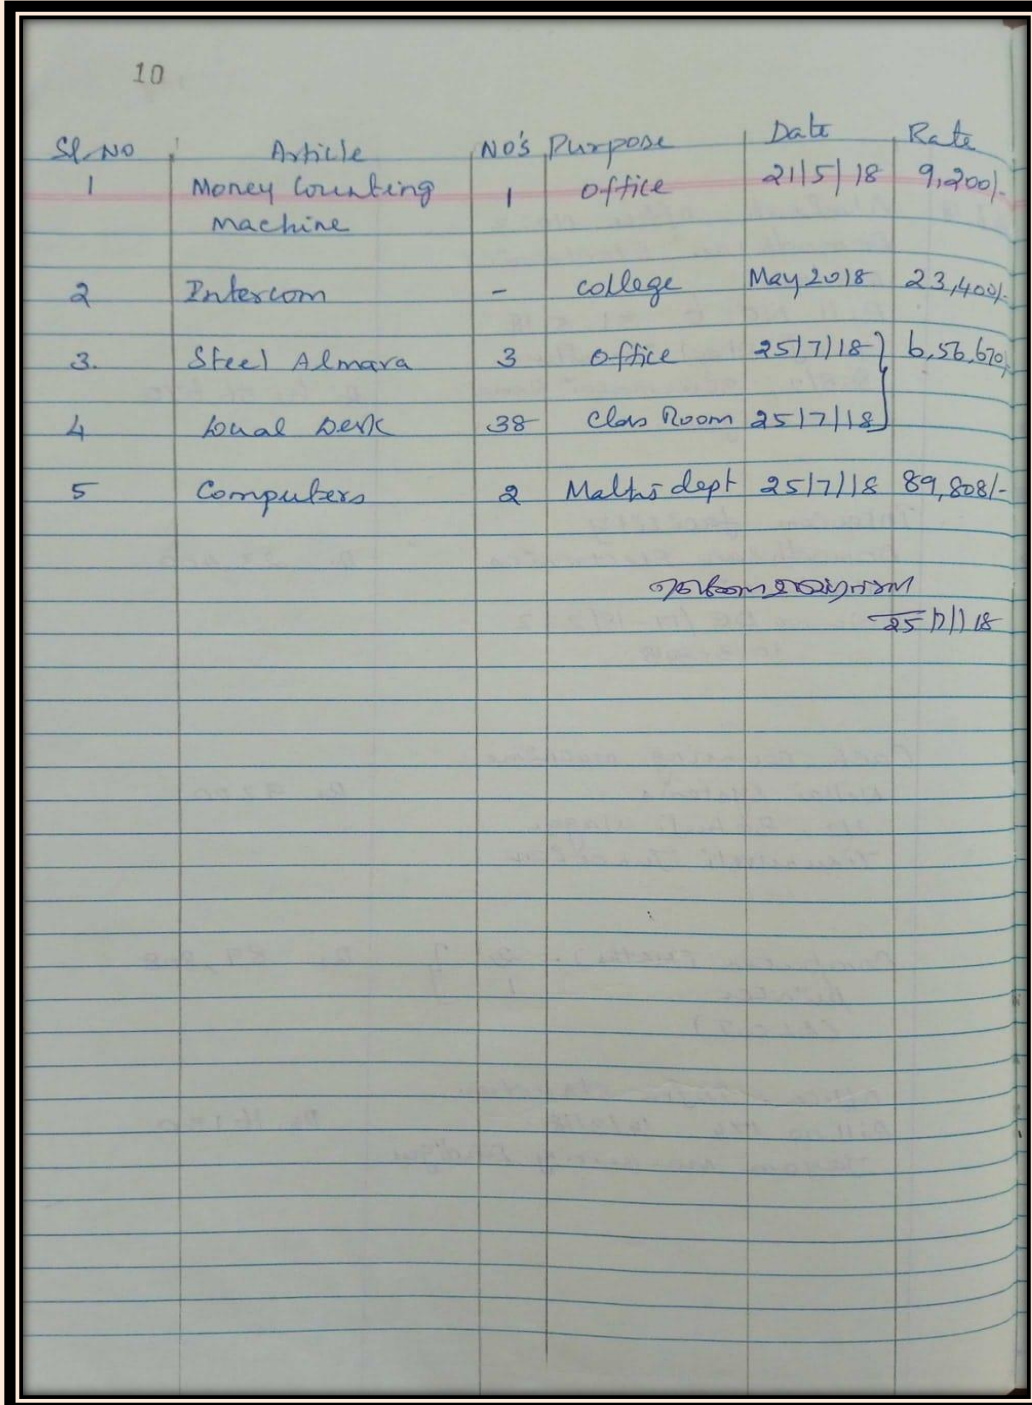 10
Sl. No Article No's Purpose Date Rate
1 Money Counting 1 office 21/5/18 9,200/-
Machine
2 Intercom - college May 2018 23,400/-
3. Steel Almara 3 office 25/7/18 6,56,670/-
4 Dual Desk 38 Class Room 25/7/18
5 Computers 2 Maths dept 25/7/18 89,808/-
25/7/18